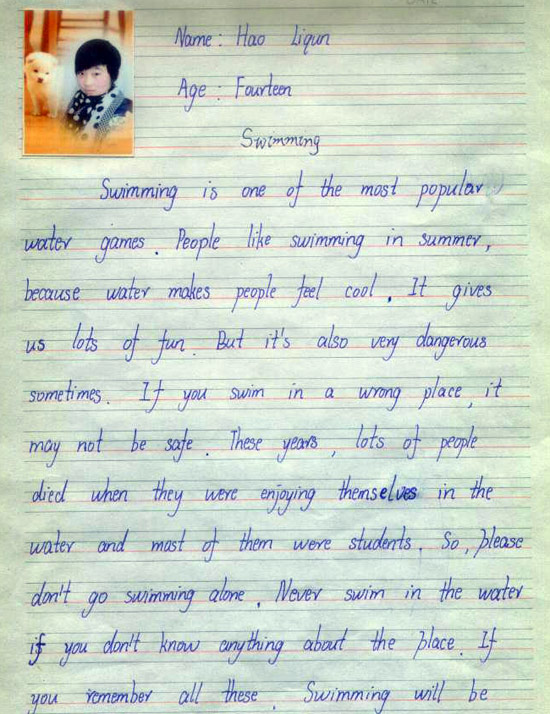 Name : Hao Liqun
Age : Fourteen
Swimming
Swimming is one of the most popular
water games. People like swimming in summer,
because water makes people feel cool. It gives
us lots of fun. But it's also very dangerous
sometimes. If you swim in a wrong place, it
may not be safe. These years, lots of people
died when they were enjoying themselves in the
water and most of them were students. So, please
don't go swimming alone. Never swim in the water
if you don't know anything about the place. If
you remember all these. Swimming will be